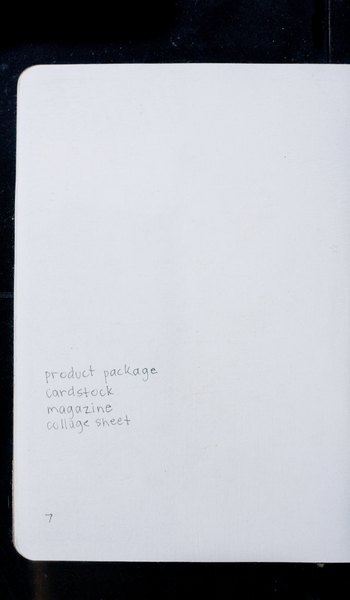 product package
cardstock
magazine
collage sheet
7